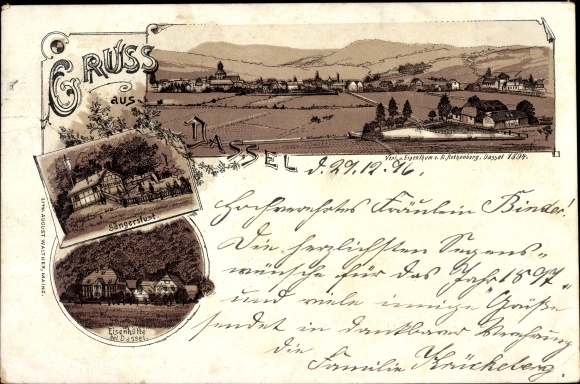 GRUSS
aus
DASSEL
Verl. u. Eigenthum v. R. Rothenberg, Dassel 1894.
Sängerslust.
Eisenhütte
bei Dassel.
LITH. AUGUST WALTHER, MAINZ.
d. 29.12.96.
Hochverehrtes Fräulein Binder!
Die herzlichsten Segens-
wünsche für das Jahr 1897
und viele innige Grüße
sendet in dankbarer Verehrung
die
Familie Krückeberg.